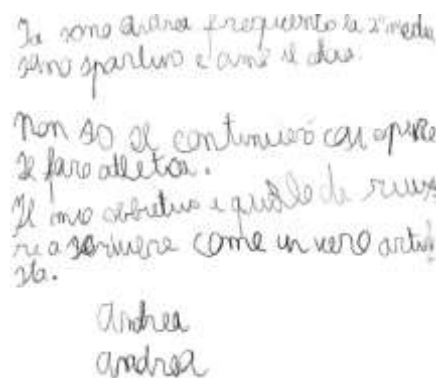 Io sono Andrea frequento la 2° media
sono sportivo e amo il
Non so se continuerò con oppure
se farò atletica.
Il mio obbiettivo è quello di riusci-
re a scrivere come un vero arti-
sta.
Andrea
andrea